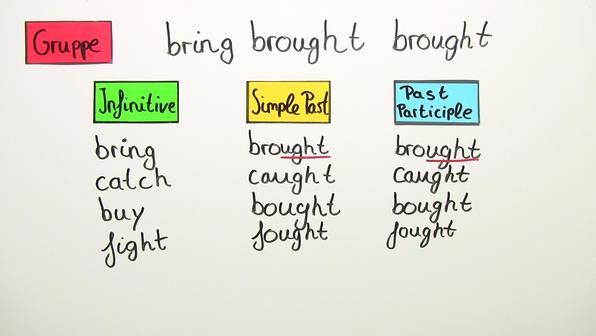 Gruppe bring brought brought
Infinitive Simple Past Past Participle
bring brought brought
catch caught caught
buy bought bought
fight fought fought